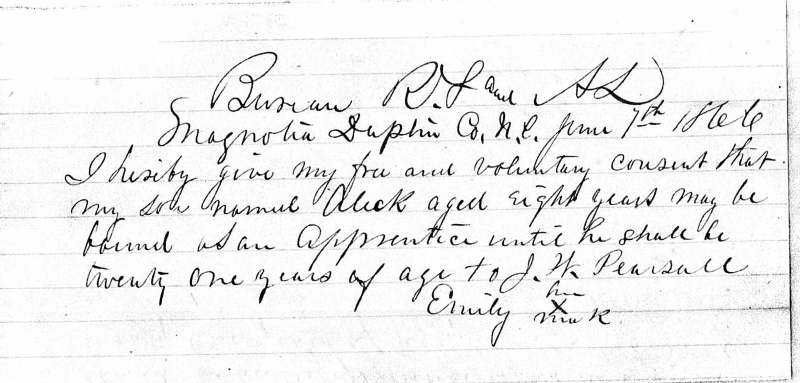 Bureau R. F. and A L
Magnolia Duplin Co, N. C. June 7th 1866
I hereby give my free and voluntary consent that
my son named Aleck aged Eight years may be
bound as an apprentice until he shall be
twenty one years of age to J. W. Pearsall
her
Emily X mark